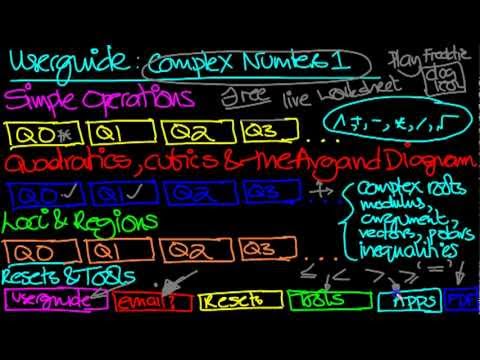 Userguide: Complex Numbers 1
Play Freddie
dog
Simple Operations
free live worksheet
Q0* Q1 Q2 Q3 ...
^, +, -, *, /, √
Quadratics, cubics & the Argand Diagram
Q0 ✓ Q1 ✓ Q2 Q3 ...
complex roots
modulus,
argument,
vectors, polars
inequalities
Loci & Regions
Q0 Q1 Q2 Q3 ...
≤ < > ≥ =
Resets & Tools
Userguide email? Resets Tools Apps PDF